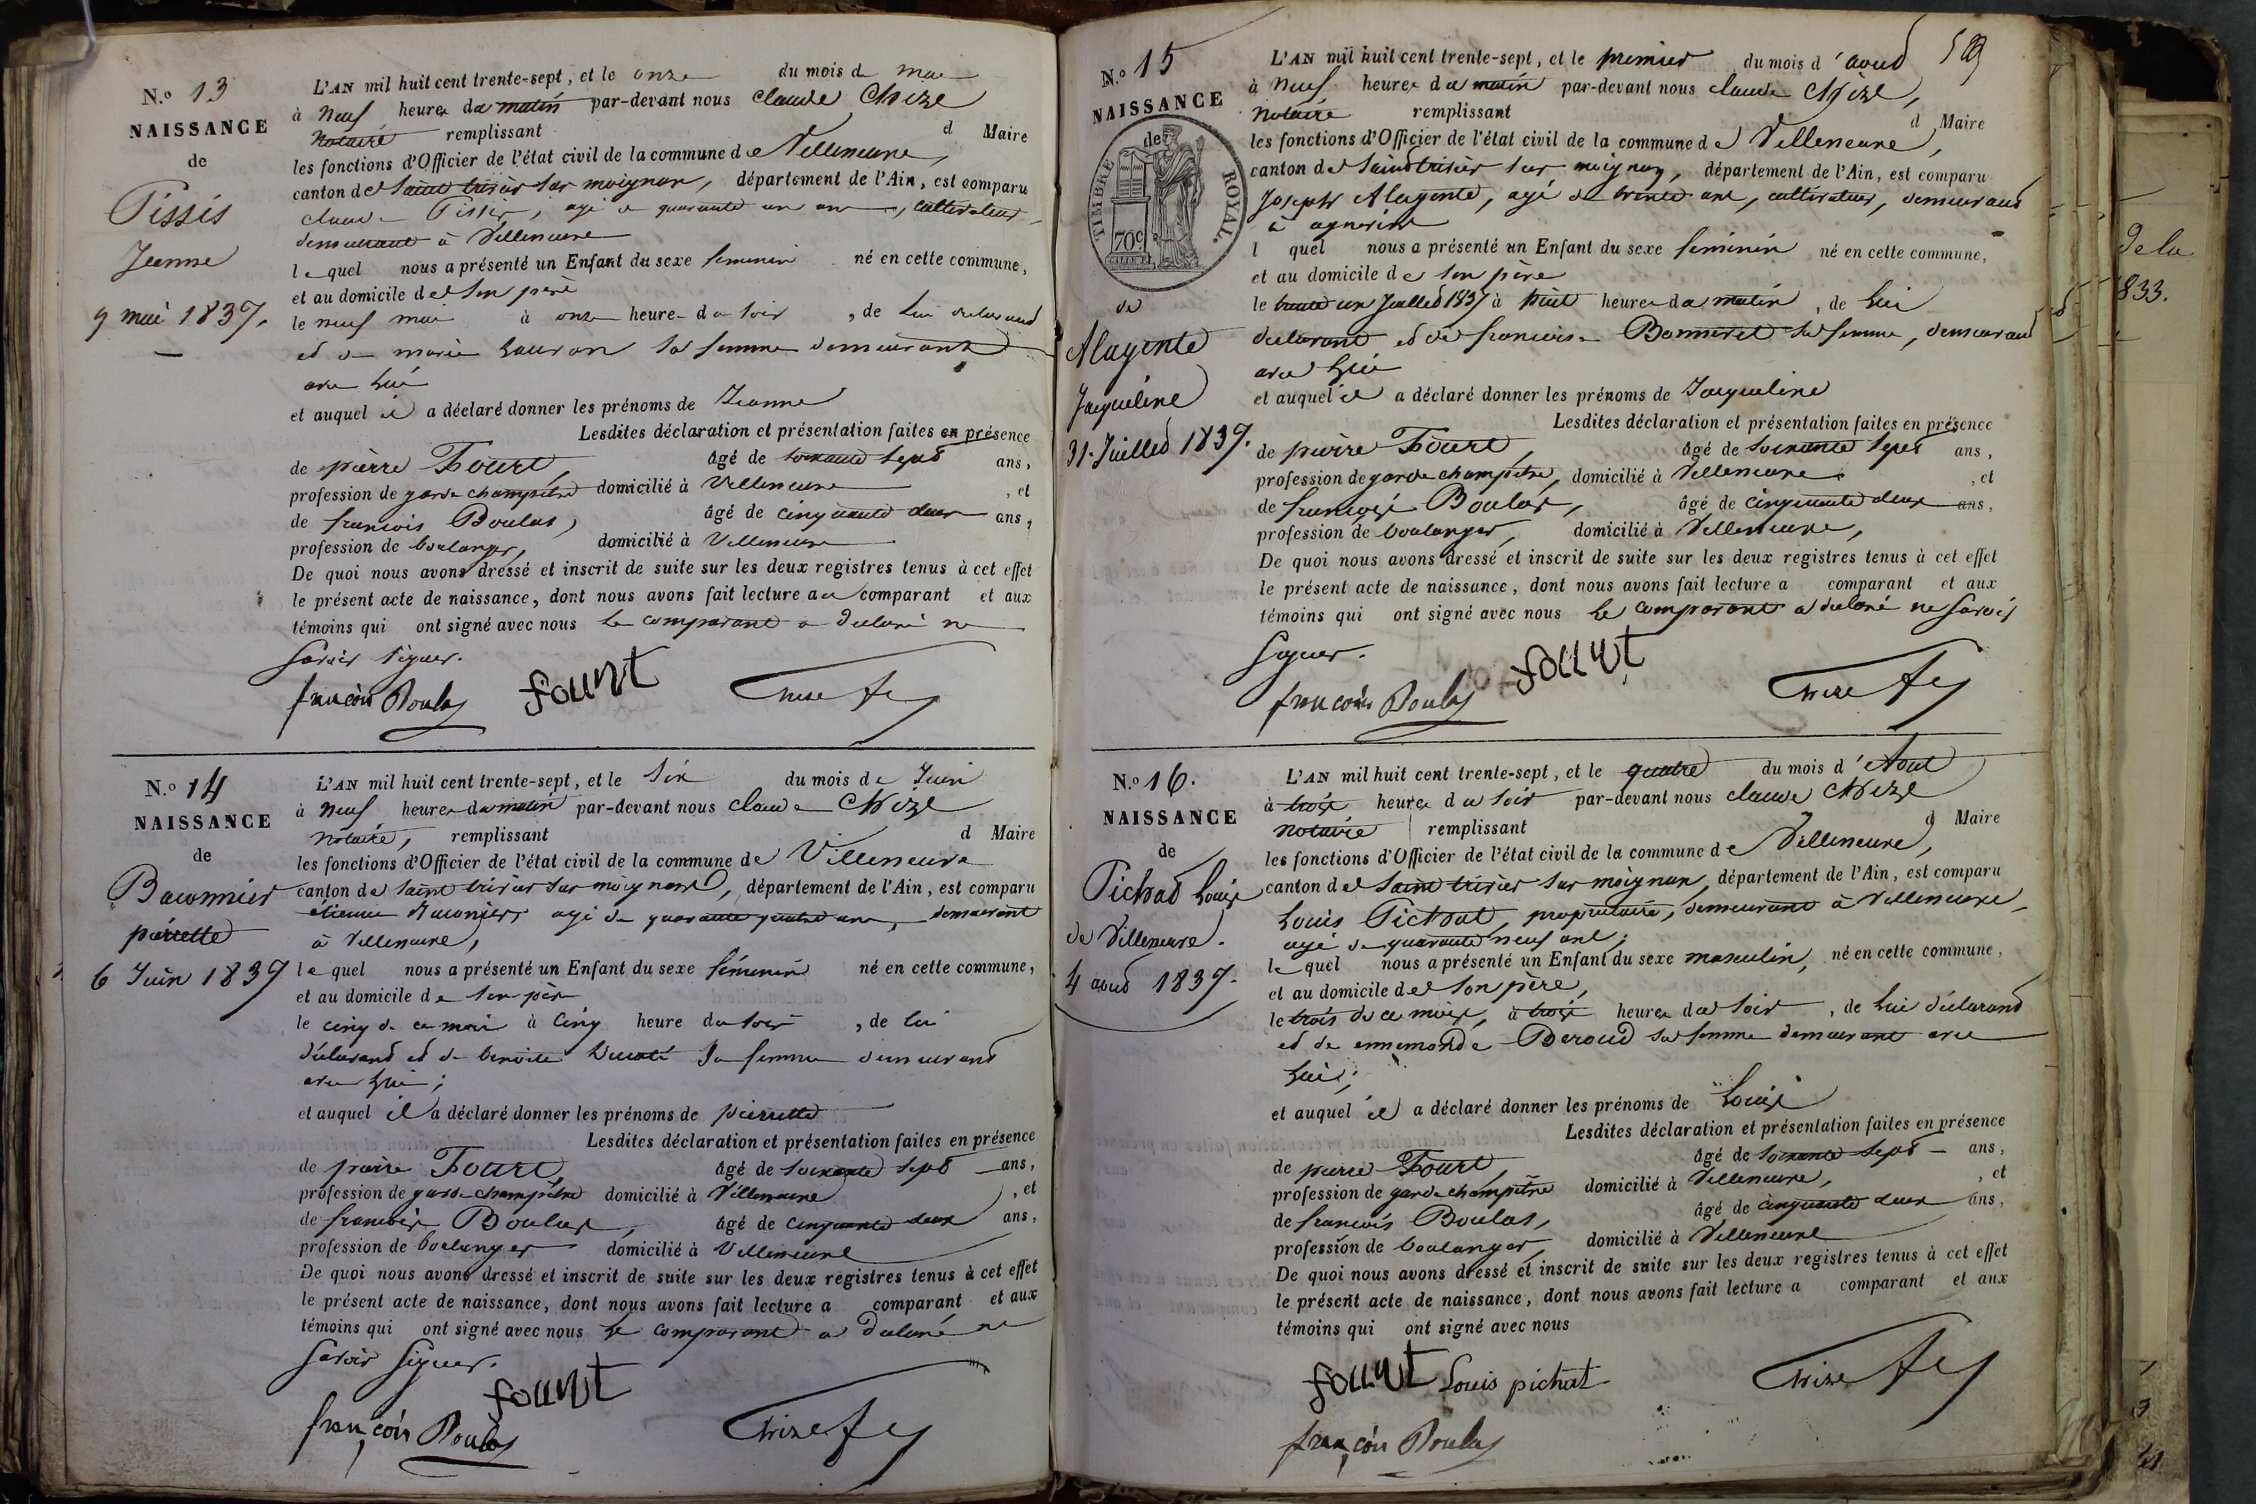 N.o 13
NAISSANCE
de
Tissis
Jeanne
9 mai 1837.
L'AN mil huit cent trente-sept, et le onze du mois de mai
à neuf heures du matin par-devant nous Claude Chize
notaire remplissant d Maire
les fonctions d'Officier de l'état civil de la commune de Velleneuve,
canton de Saint trivier sur moignan, département de l'Ain, est comparu
claude Tissis, agé de quarante un ans, cultivateur
demeurant à Villeneuve
lequel nous a présenté un Enfant du sexe feminin né en cette commune,
et au domicile de son père
le neuf mai à onze heure du soir, de lui declarand
et de marie sa femme demeurant
avec lui
et auquel il a déclaré donner les prénoms de Jeanne
Lesdites déclaration et présentation faites en présence
de pierre Fourt, âgé de soixante sept ans,
profession de garde champêtre domicilié à Velleneuve, et
de francois Boulas, âgé de cinquante deux ans,
profession de boulanger, domicilié à Velleneuve
De quoi nous avons dressé et inscrit de suite sur les deux registres tenus à cet effet
le présent acte de naissance, dont nous avons fait lecture au comparant et aux
témoins qui ont signé avec nous le comparant a declaré ne
savoir signer.
françois Boulas fourt Chize
N.o 14
NAISSANCE
de
Baconnier
pierrette
6 Juin 1837
L'AN mil huit cent trente-sept, et le six du mois de Juin
à neuf heures du matin par-devant nous claude Chize
notaire, remplissant d Maire
les fonctions d'Officier de l'état civil de la commune de Villeneuve
canton de saint trivier sur moignand, département de l'Ain, est comparu
étienne Baconnier, agé de quarante quatre ans, demeurant
à Velleneuve,
lequel nous a présenté un Enfant du sexe féminin né en cette commune,
et au domicile de son père
le cinq de ce mois à cinq heure du soir, de lui
déclarand et de benoite sa femme demeurand
avec lui;
et auquel il a déclaré donner les prénoms de pierrette
Lesdites déclaration et présentation faites en présence
de pierre Fourt, âgé de soixante sept ans,
profession de garde champêtre domicilié à Villeneuve, et
de francois Boulas, âgé de cinquante deux ans,
profession de boulanger domicilié à Velleneuve
De quoi nous avons dressé et inscrit de suite sur les deux registres tenus à cet effet
le présent acte de naissance, dont nous avons fait lecture a comparant et aux
témoins qui ont signé avec nous le comparant a declaré ne
savoir signer.
fourt
françois Boulas Chize
N.o 15
NAISSANCE
de
TIMBRE ROYAL.
70c
de
Alagente
Jacqueline
31. Juilled 1837.
L'AN mil huit cent trente-sept, et le premier du mois d'aoud
à neuf heures du matin par-devant nous claude Chize,
notaire remplissant d Maire
les fonctions d'Officier de l'état civil de la commune de Velleneuve,
canton de Saint trivier sur moignan, département de l'Ain, est comparu
Joseph Alagente, agé de trente ans, cultivateur, demeurand
à agnerins
l quel nous a présenté un Enfant du sexe feminin né en cette commune,
et au domicile de son père
le trente un Juilled 1837 à huit heures du matin, de lui
declarant et de francoise Bonneret sa femme, demeurand
avec lui
et auquel il a déclaré donner les prénoms de Jacqueline
Lesdites déclaration et présentation faites en présence
de pierre Fourt, âgé de soixante sept ans,
profession de garde champêtre, domicilié à Velleneuve, et
de françois Boulas, âgé de cinquante deux ans,
profession de boulanger, domicilié à Velleneuve,
De quoi nous avons dressé et inscrit de suite sur les deux registres tenus à cet effet
le présent acte de naissance, dont nous avons fait lecture a comparant et aux
témoins qui ont signé avec nous le comparant a declaré ne savoir
signer.
françois Boulas fourt Chize
N.o 16.
NAISSANCE
de
Pichad Louis
de Villeneuve.
4 aoud 1837.
L'AN mil huit cent trente-sept, et le quatre du mois d'Aout
à trois heures du soir par-devant nous claude Chize
notaire remplissant d Maire
les fonctions d'Officier de l'état civil de la commune de Velleneuve,
canton de Saint trivier sur moignan, département de l'Ain, est comparu
Louis Pichat, propriétaire, demeurant à Velleneuve,
agé de quarante neuf ans;
lequel nous a présenté un Enfant du sexe masculin, né en cette commune,
et au domicile de son père,
le trois de ce mois, à trois heures du soir, de lui déclarand
et de ennemonde Beroud sa femme demeurant avec
lui;
et auquel il a déclaré donner les prénoms de Louis
Lesdites déclaration et présentation faites en présence
de pierre Fourt, âgé de soixante sept ans,
profession de garde champêtre domicilié à Velleneuve, et
de francois Boulas, âgé de cinquante deux ans,
profession de boulanger, domicilié à Velleneuve
De quoi nous avons dressé et inscrit de suite sur les deux registres tenus à cet effet
le présent acte de naissance, dont nous avons fait lecture a comparant et aux
témoins qui ont signé avec nous
fourt Louis pichat Chize
françois Boulas
de la
833.